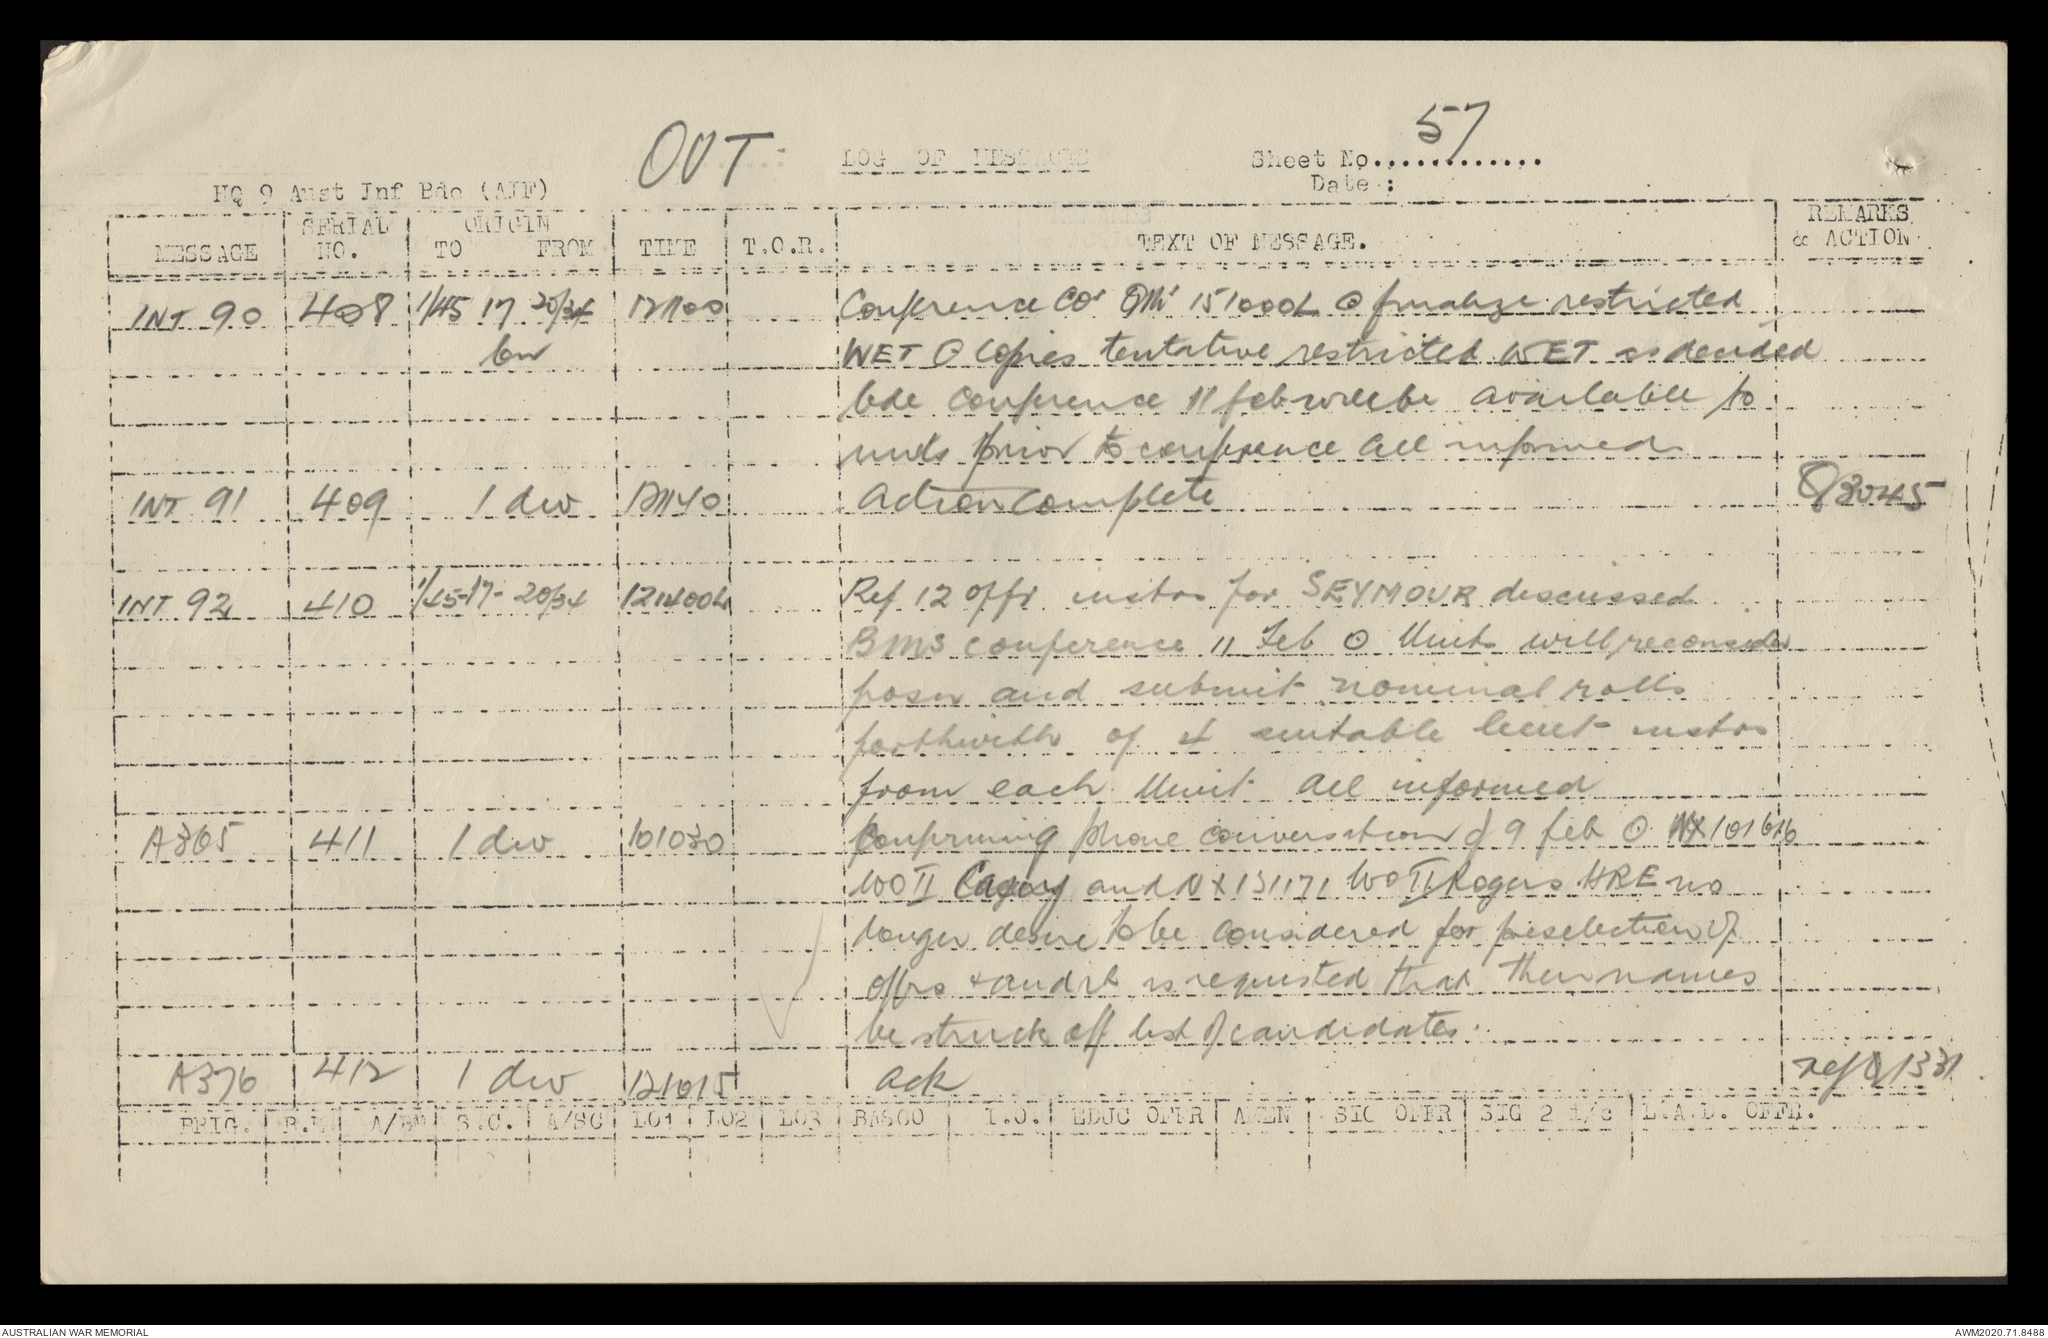 OUT
LOG OF MESSAGES
Sheet No............. 57
Date :
HQ 9 Aust Inf Bde (AIF)
MESSAGE SERIAL NO. ORIGIN TO FROM TIME T.O.R. TEXT OF MESSAGE. REMARKS & ACTION
INT 90 408 1/45 17 20/34 121100 Conference CO' QM' 151000L ⊙ finalize restricted
bn WET ⊙ Copies tentative restricted WET as decided
bde conference 11 feb will be available to
units prior to conference all informed
INT 91 409 1 div 121140 Action complete Q/3045
INT 92 410 1/45-17- 20/34 121400L Ref 12 offr instrs for SEYMOUR discussed
BMS conference 11 Feb ⊙ Units will reconsider
posn and submit nominal rolls
forthwith of 4 suitable lieut instrs
from each Unit all informed
A365 411 1 div 101030 Confirming phone conversation of 9 feb ⊙ NX101616
WO II and NX131171 WO II Rogers HRE no
longer desire to be considered for preselection of
offrs + and it is requested that their names
be struck off list of candidates.
A376 412 1 div 121015 ack ref Q/1331
BRIG. B.M. A/BM S.C. A/SC LO1 LO2 LO3 BASCO I.O. EDUC OFFR AMEN SIG OFFR SIG 2 i/c L.A.D. OFFR.
AUSTRALIAN WAR MEMORIAL
AWM2020.71.8488